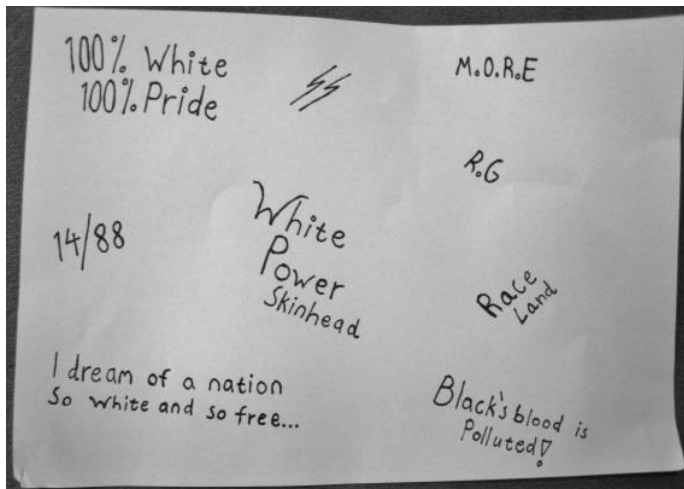 100% White
100% Pride
M.O.R.E
R.G
14/88
White
Power
Skinhead
Race
Land
I dream of a nation
So white and so free...
Black's blood is
Polluted!